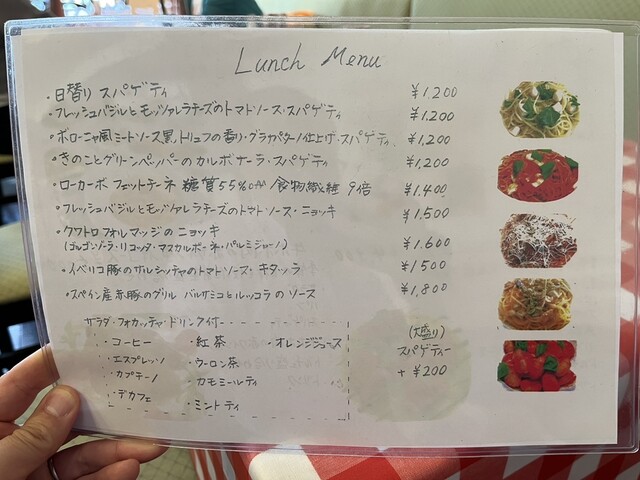 Lunch Menu
・日替り スパゲティ ¥1.200
・フレッシュバジルとモッツァレラチーズのトマトソース・スパゲティ ¥1.200
・ボローニャ風ミートソース黒トリュフの香り・グラナパダーノ仕上げ・スパゲティ ¥1,200
・きのことグリーンペッパーのカルボナーラ・スパゲティ ¥1,200
・ローカーボ フェットチーネ 糖質55%off 食物繊維 9倍 ¥1.400
・フレッシュバジルとモッツァレラチーズのトマトソース・ニョッキ ¥1.500
・クワトロフォルマッジのニョッキ ¥1.600
(ゴルゴンゾーラ・リコッタ・マスカルポーネ・パルミジャーノ)
・イベリコ豚のサルシッチャのトマトソース・キタッラ ¥1500
・スペイン産赤豚のグリル バルサミコとルッコラのソース ¥1,800
サラダ・フォカッチャ・ドリンク付
・コーヒー ・紅茶 ・オレンジジュース
・エスプレッソ ・ウーロン茶
・カプチーノ ・カモミールティ
・デカフェ ・ミントティ
(大盛り)
スパゲティー
+ ¥200